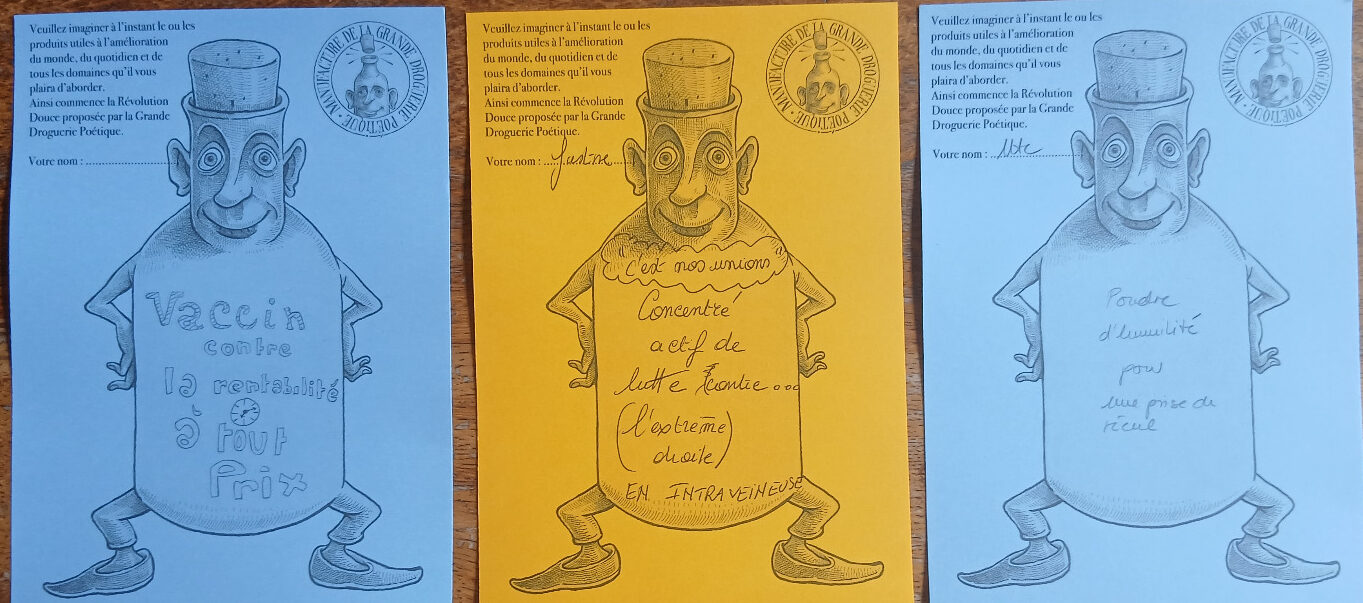 Veuillez imaginer à l'instant le ou les
produits utiles à l'amélioration
du monde, du quotidien et de
tous les domaines qu'il vous
plaira d'aborder.
Ainsi commence la Révolution
Douce proposée par la Grande
Droguerie Poétique.
Votre nom :
MANUFACTURE DE LA GRANDE DROGUERIE POÉTIQUE
Vaccin
contre
la rentabilité
à tout
Prix
Veuillez imaginer à l'instant le ou les
produits utiles à l'amélioration
du monde, du quotidien et de
tous les domaines qu'il vous
plaira d'aborder.
Ainsi commence la Révolution
Douce proposée par la Grande
Droguerie Poétique.
Votre nom : Justine
MANUFACTURE DE LA GRANDE DROGUERIE POÉTIQUE
"c'est nos unions"
Concentré
actif de
lutte contre...
(l'extrême
droite)
EN INTRAVEINEUSE
Veuillez imaginer à l'instant le ou les
produits utiles à l'amélioration
du monde, du quotidien et de
tous les domaines qu'il vous
plaira d'aborder.
Ainsi commence la Révolution
Douce proposée par la Grande
Droguerie Poétique.
Votre nom :
MANUFACTURE DE LA GRANDE DROGUERIE POÉTIQUE
Poudre
d'humilité
pour
une prise de
recul